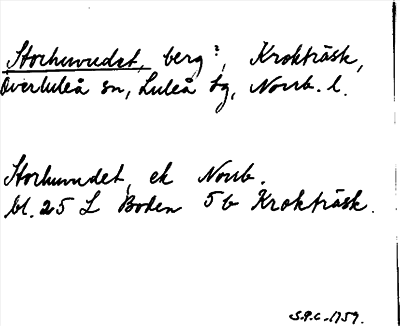 Storhuvudet, berg?, Krokträsk,
Överluleå sn, Luleå tg, Norrb. l.
Storhuvudet, ek Norrb.
bl. 25 L Boden 5b Krokträsk.
S.P.C. 1959.